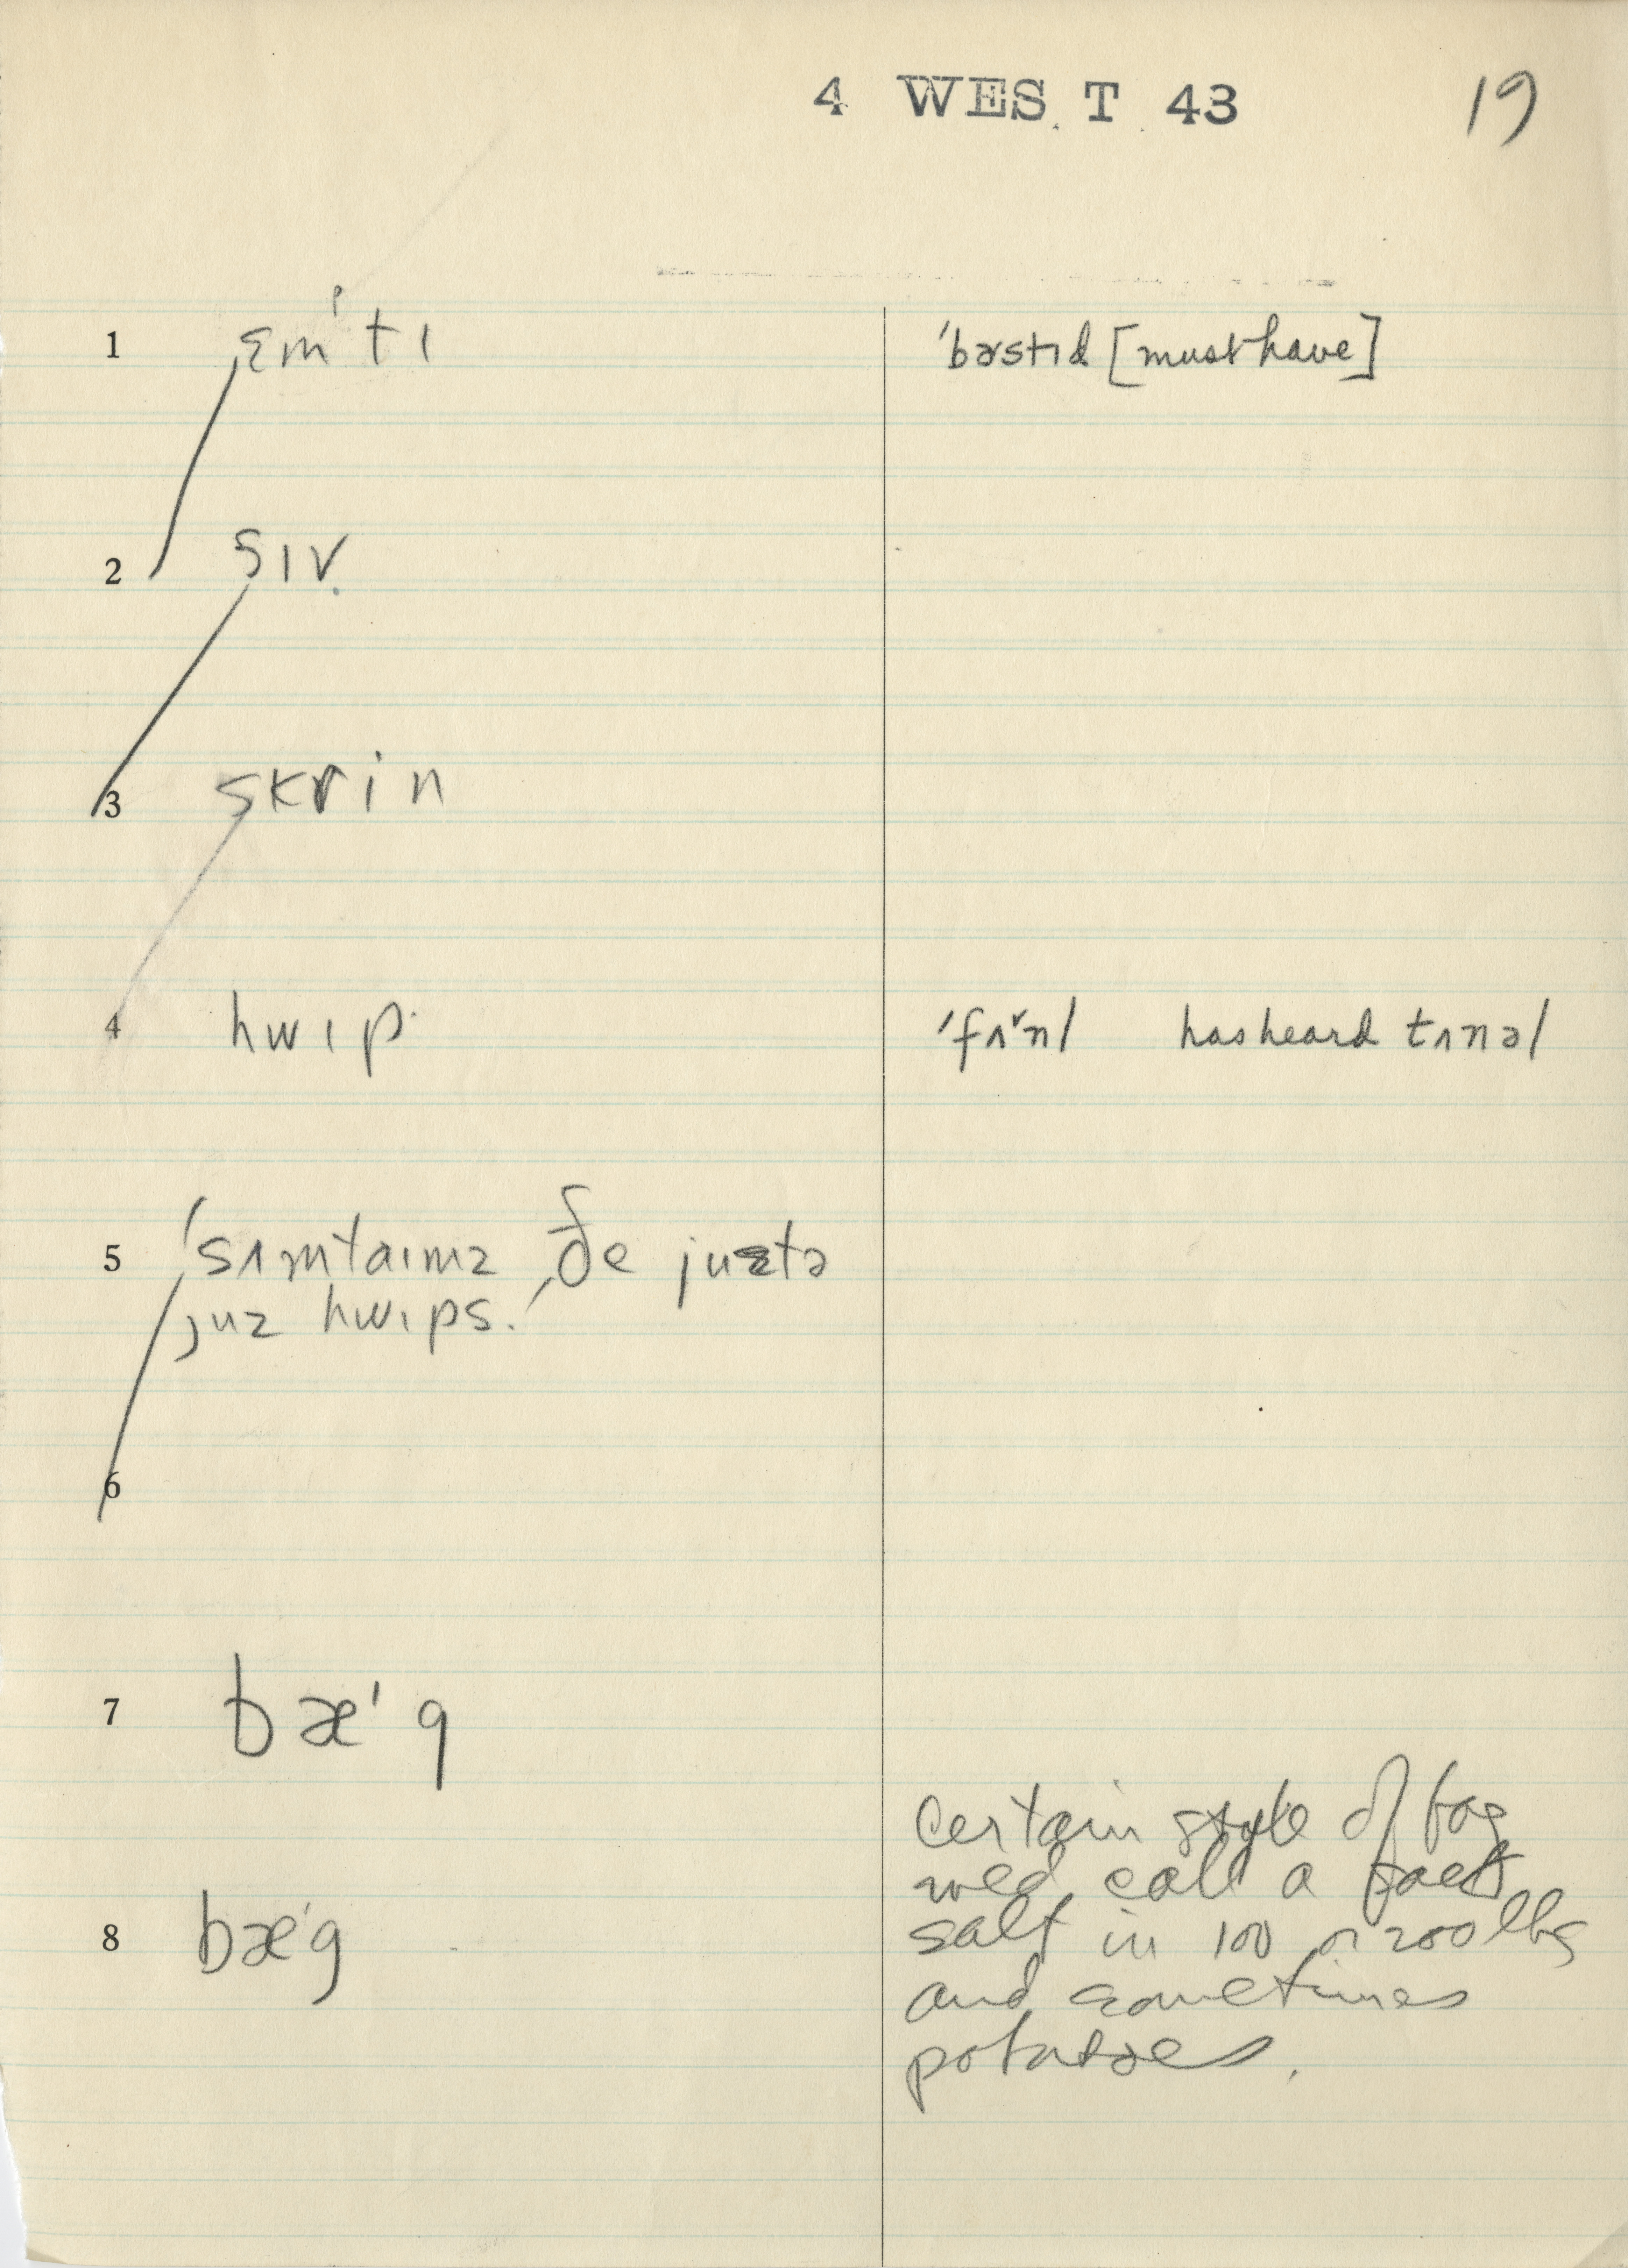 4 WEST 43 19
1 ɛm'tɪ 'bɚstɪd [must have]
2 sɪv
3 skrin
4 hwɪp 'fʌ˅nl has heard tʌnəl
5 'sʌmtaɪmz ðe justə
juz hwɪps.
6
7 bæ'g
certain style of bag
wed call a sack
8 bæ'g salt in 100 or 200 lbs
and sometimes
potatoes.